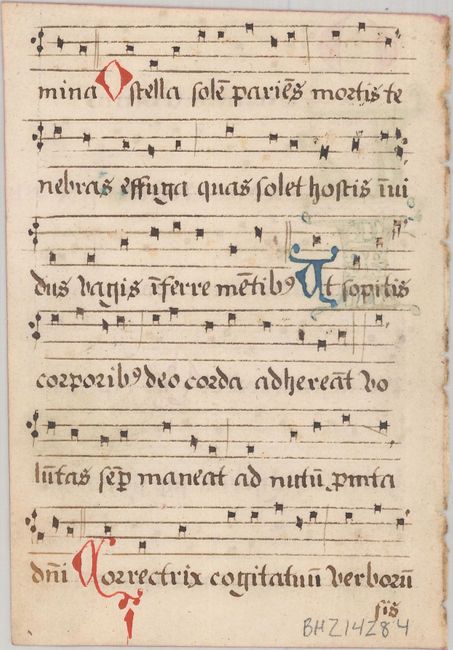 mina O stella solē pariēs mortis te
nebras effuga quas solet hostis īvi
dus vagis īferre mētibꝰ Ut sopitis
corporibꝰ deo corda adhereāt vo
lūtas sēp maneat ad nutū porta
dn̄i Correctrix cogitatuū verborū
sis
BHZ14Z84